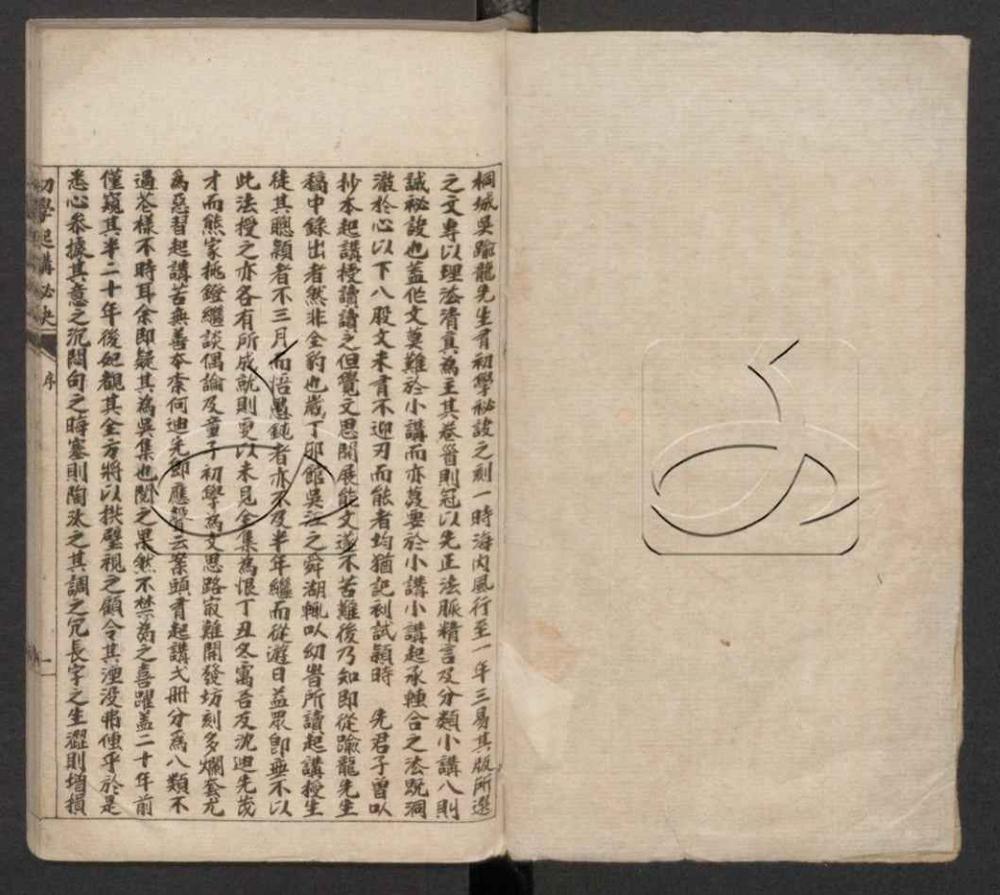 桐城吳踰龍先生有初學秘訣之刻一時海内風行至一年三易其版所選
之文專以理法清真為主其卷首則冠以先正法脈精言及分類小講八則
誠秘訣也蓋作文莫難於小講而亦莫要於小講小講起承轉合之法既洞
澈於心以下八股文未有不迎刃而能者均猶記利試韻時 先君子曾以
抄本起講授讀讀之但覺文思開展能文遂不苦難後乃知即從踰龍先生
稿中錄出者然非全豹也歲丁卯館吳江之舜湖輒以幼嘗所讀起講授生
徒其聰穎者不三月而悟愚鈍者亦不及半年繼而從遊日益眾即無不以
此法授之亦各有所成就則更以未見全集為恨丁丑冬寓吾友沈迪先茂
才而熊家挑鐙繼談偶論及童子初學為文思路寂難開發坊刻多爛套尤
為惡習起講苦無善本柰何迪先即應聲云案頭有起講弍册分為八類不
過花樣不時耳余即疑其為吳集也閱之果然不禁為之喜躍蓋二十年前
僅窺其半二十年後始覩其全方將以拱璧視之顧令其湮没弗傳乎於是
悉心參據其意之沉悶句之晦塞則陶汰之其調之冗長字之生澀則增損
初學起講必夬 序 一